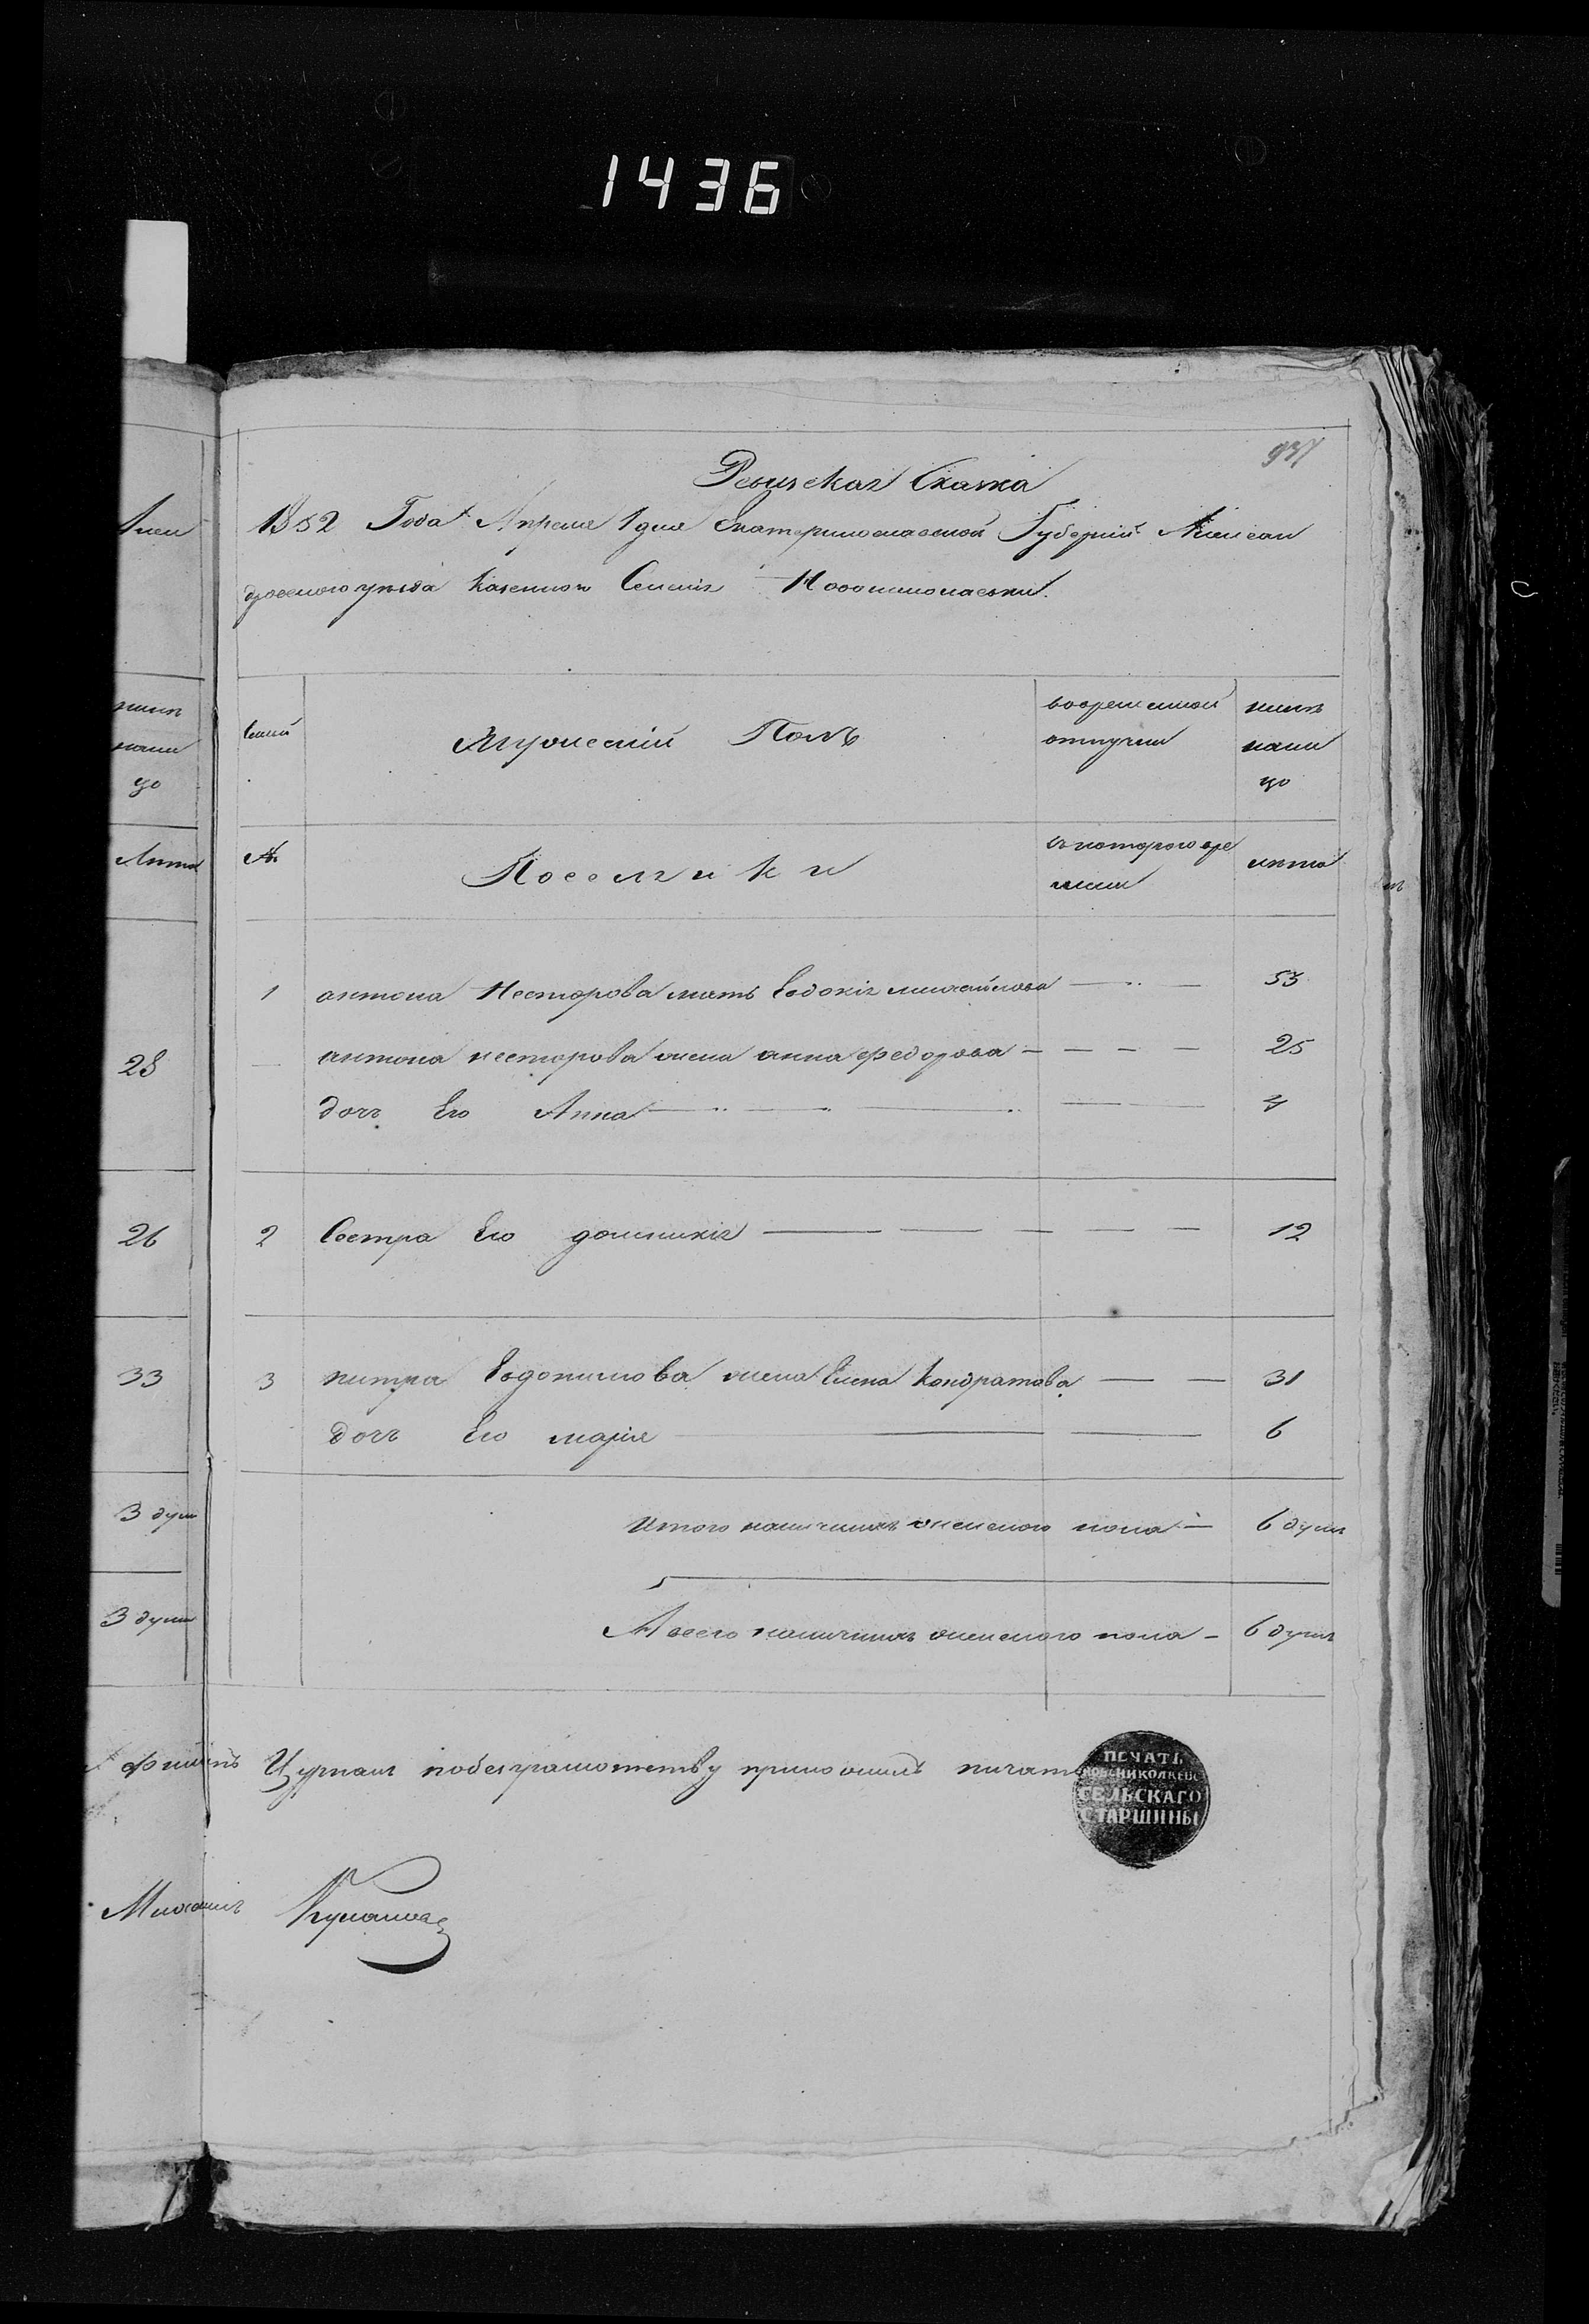 1436
937
Ревизская Сказка
1852 Года Апреля 1 дня Екатеринославской Губернии Александ
ровского уезда Казенного Селения Новониколаевки.
Семьи
Женский Полъ
во временной
отлучки
ныне
нали
цо
№
Поселяики
съ которого вре
мени
лета
1 антона Несторова мать Евдокия михайлова 53
антона несторова жена анна федорова 25
дочь Его Анна 4
2 Сестра Его домникия 12
3 питра Евдокимова жена Елена Кондратова 31
дочь Его мария 6
Итого наличныхъ женского пола 6 душъ
А всего наличныхъ женского пола 6 душъ
нали
цо
Лета
28
26
33
3 души
3 души
по безграмотству приложилъ печать
ПЕЧАТЬ
НОВОНИКОЛАЕВС
СЕЛЬСКАГО
СТАРШИНЫ
Михаилъ